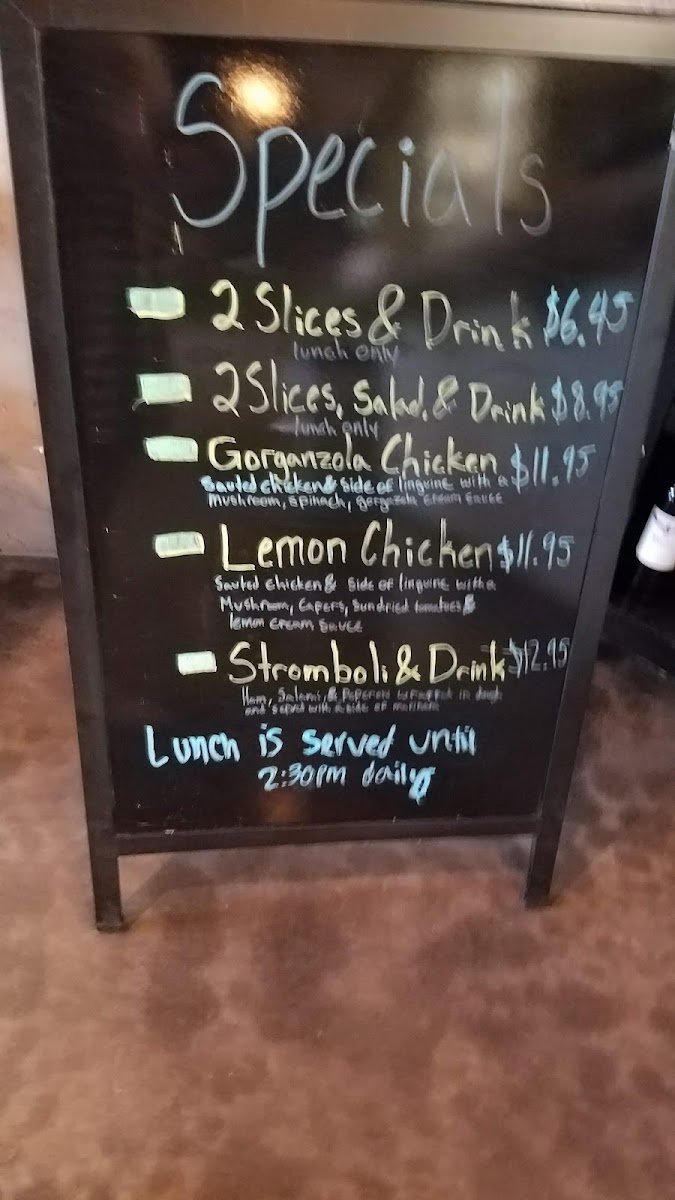 Specials
2 Slices & Drink $6.45
lunch only
2 Slices, Salad, & Drink $8.95
lunch only
Gorganzola Chicken $11.95
Sauted chicken & side of linguine with a
mushroom, spinach, gorgazola cream sauce
Lemon Chicken $11.95
Sauted chicken & side of linguine with a
Mushroom, Capers, Sundried tomatoes &
lemon cream sauce
Stromboli & Drink $12.95
Ham, Salami, & Peperoni wrapped in dough
and served with a side of marinara
Lunch is served until
2:30pm daily